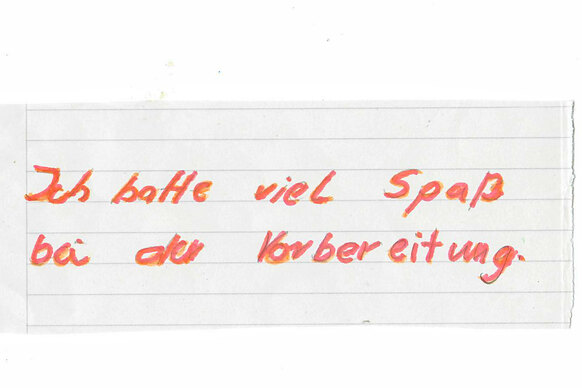 Ich hatte viel Spaß
bei der Vorbereitung.